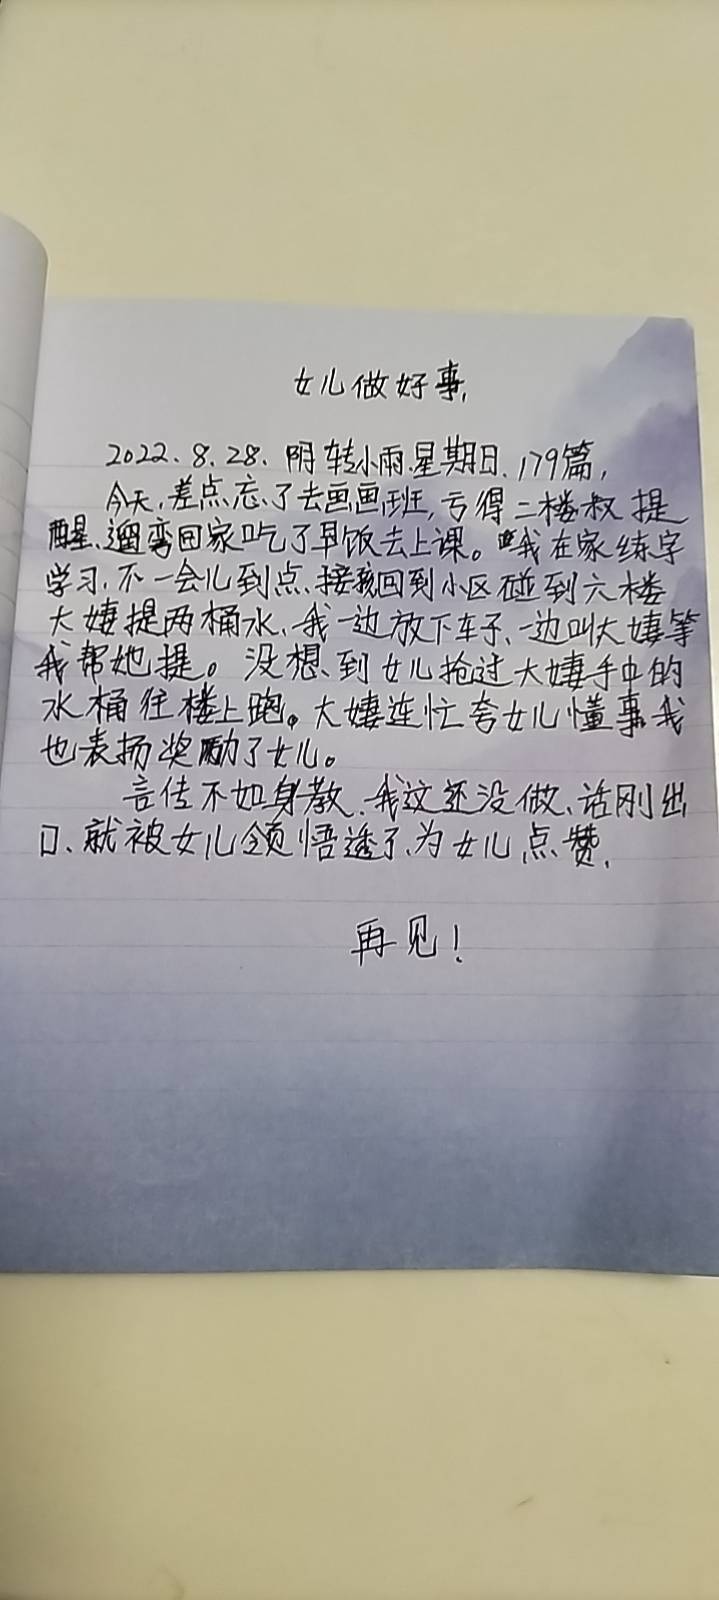 女儿做好事,
2022.8.28.阴转小雨.星期日.179篇,
今天,差点忘了去画画班,亏得二楼叔提
醒、遛弯回家吃了早饭去上课。我在家练字
学习,不一会儿到点、接孩回到小区碰到六楼
大婶提两桶水、我一边放下车子、一边叫大婶等
我帮她提。没想到女儿抢过大婶手中的
水桶往楼上跑。大婶连忙夸女儿懂事、我
也表扬奖励了女儿。
言传不如身教、我这还没做、话刚出
口、就被女儿领悟透了、为女儿点赞,
再见!